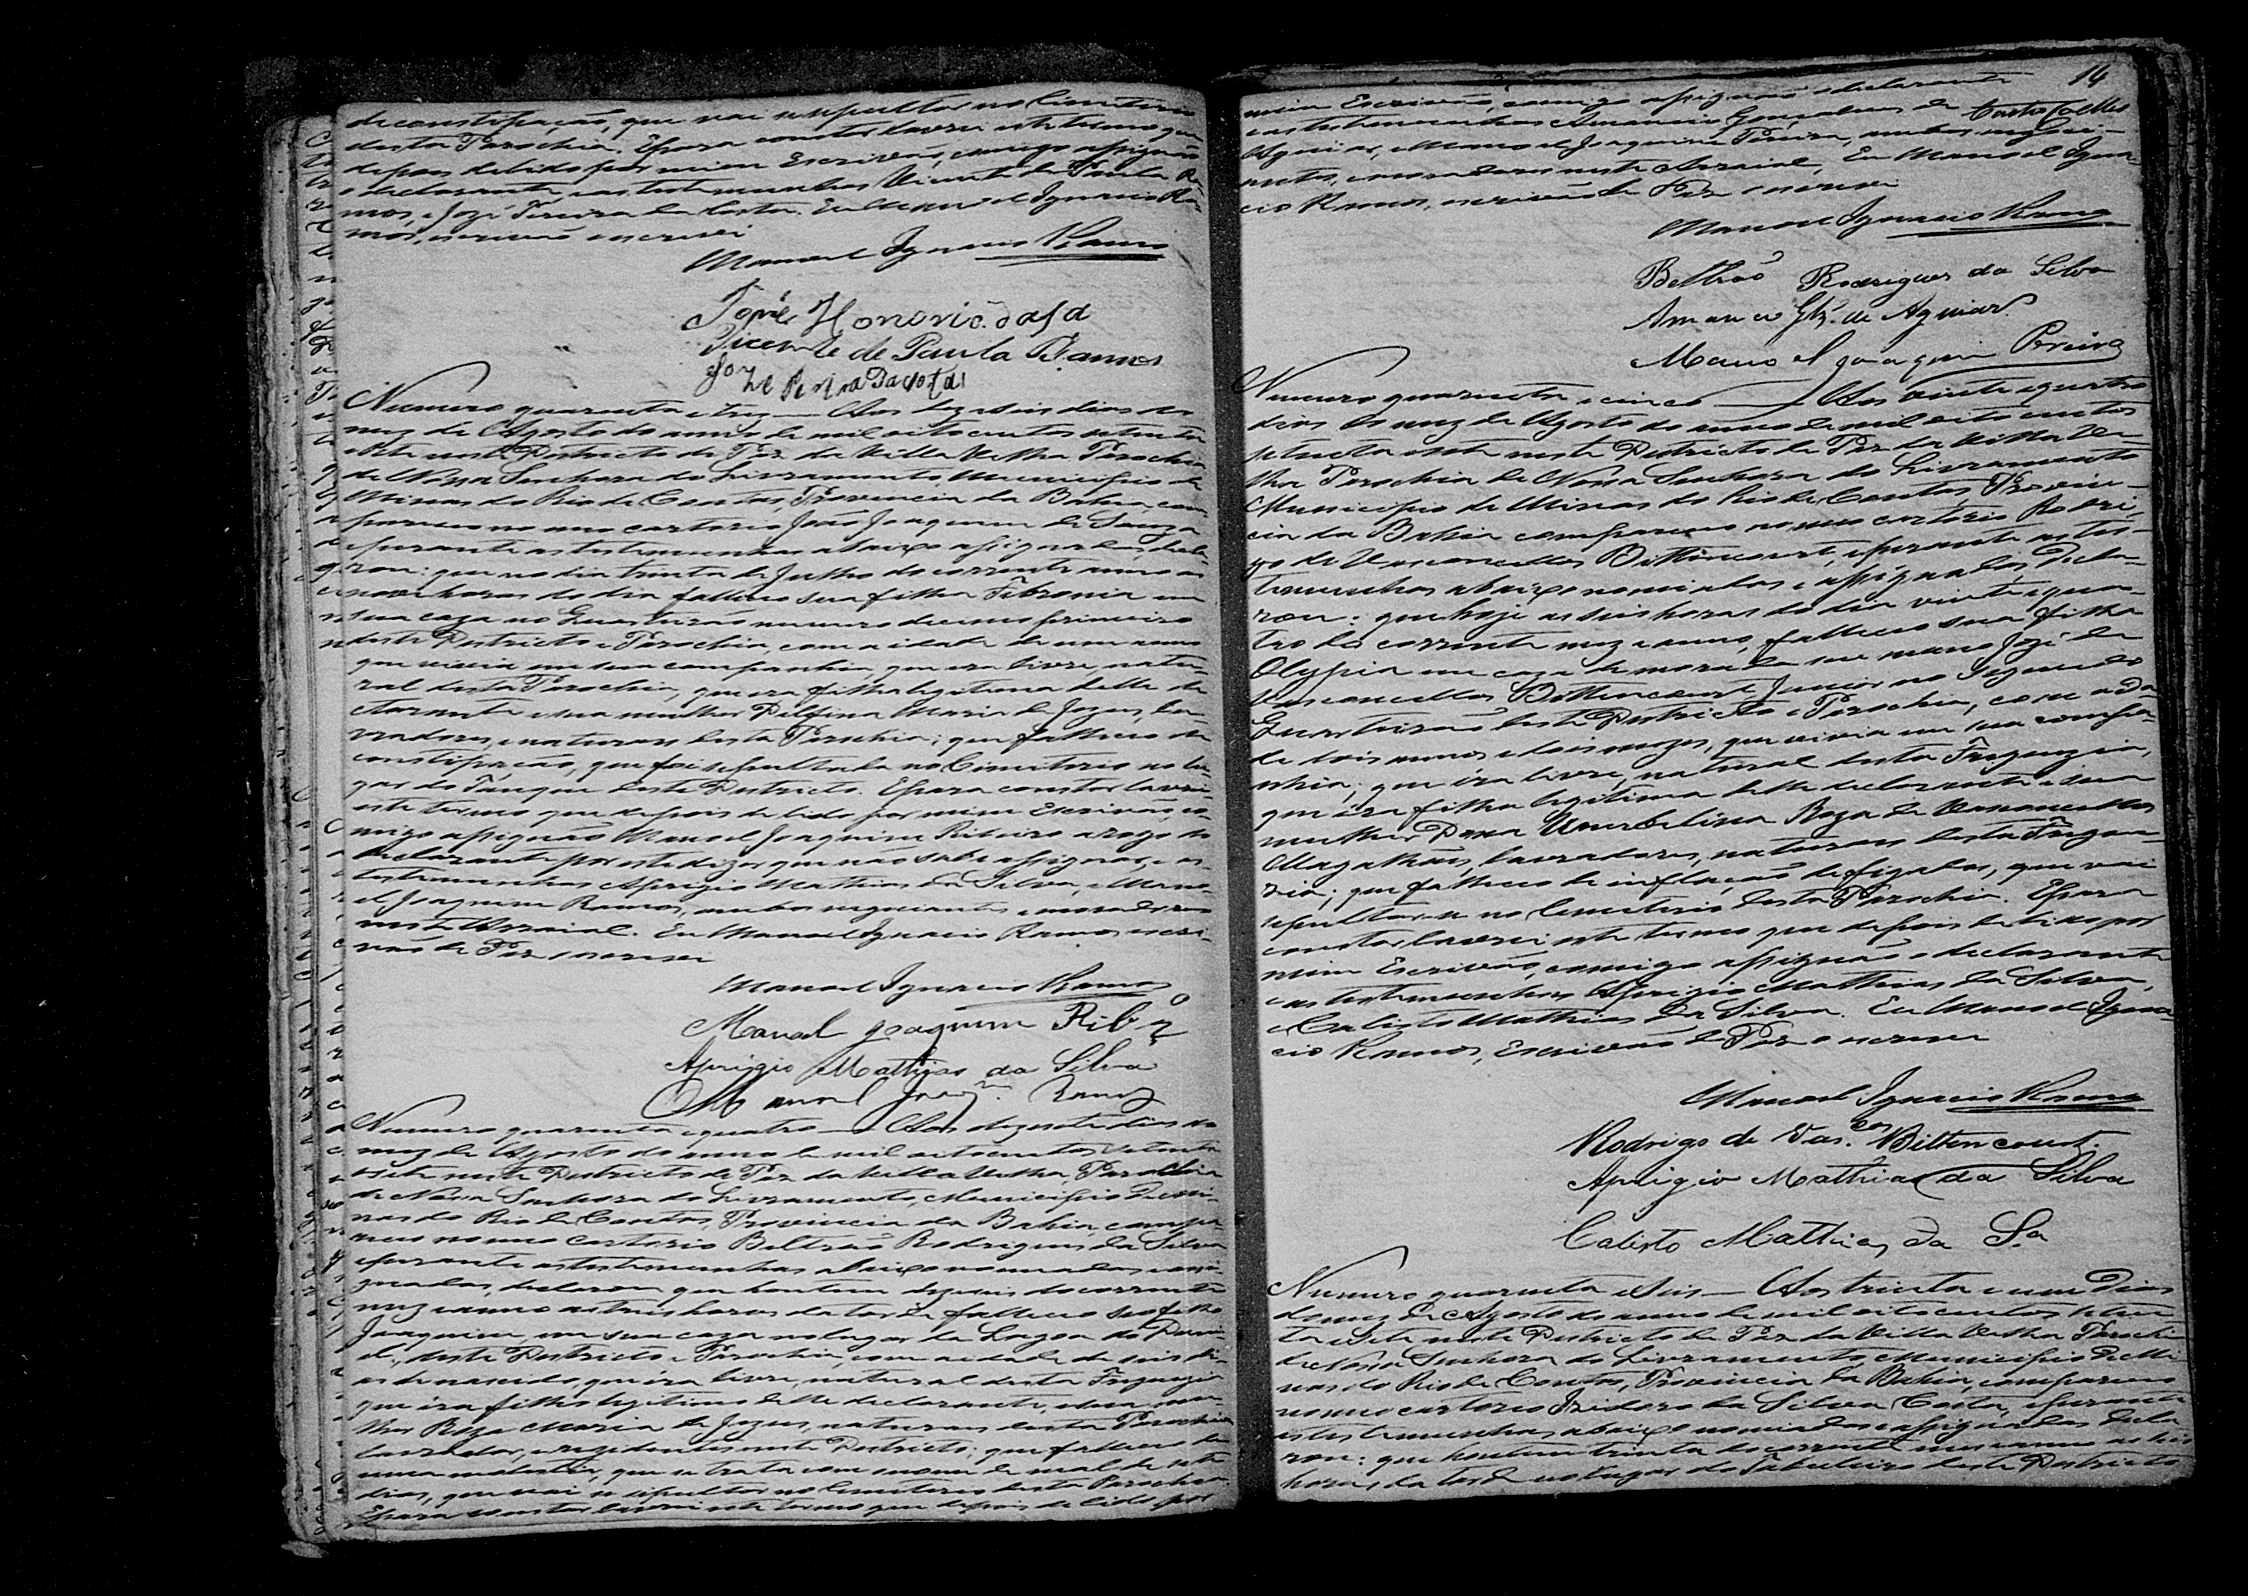 de constipação, que vai se sepultar no Cimiterio
desta Parochia. E para constar lavrei este termo que
depois de lido por mim Escrivão, comigo assignão
o declarante, e as testemunhas Vicente de Paula Ra-
mos, e José Pereira da Costa. Eu Manoel Ignacio Ra-
mos, escrivão escrevi
Manoel Ignacio Ramos
Honorio da Sa
Vicente de Paula Ramos
Joze Pereira da Costa
Numero quarenta e tres — Aos dezeseis dias do
mez de Agosto do anno de mil oitocentos setenta
e sete neste Districto de Paz da Villa Velha Parochia
de Nossa Senhora do Livramento Municipio de
Minas do Rio de Contas, Provincia da Bahia, com-
pareceo no meo cartorio João Joaquim de Souza
e perante as testemunhas abaixo assignadas decla-
rou: que no dia trinta de Julho do corrente anno as
nove horas do dia falleceo sua filha Febronia em
sua caza no Quarteirão numero decimo primeiro
deste Districto e Parochia, com a idade de um anno
que vivia em sua companhia, que era livre, natu-
ral desta Parochia, que era filha legitima delle de-
clarante e sua mulher Delfina Maria de Jezus, la-
vradores, e naturaes desta Parochia; que falleceo de
constipação, que foi sepultada no Cimiterio no lu-
gar do Tanque deste Districto. E para constar lavrei
este termo que depois de lido por mim Escrivão co-
migo assignão Manoel Joaquim Ribeiro a rogo do
declarante por este dizer que não sabe assignar, e as
testemunhas Aprigio Mathias da Silva, e Mano-
el Joaquim Ramos, ambos negociantes e moradores
neste Arraial. Eu Manoel Ignacio Ramos escri-
vão de Paz escrevi
Manoel Ignacio Ramos
Manoel Joaquim Ribrº
Aprigio Mathias da Silva
Manoel Joaqm. Ramos
Numero quarenta e quatro — Aos dezesete dias do
mez de Agosto do anno de mil oitocentos setenta
e sete neste Districto de Paz da Villa Velha, Parochia
de Nossa Senhora do Livramento, Municipio de Mi-
nas do Rio de Contas, Provincia da Bahia, compa-
receo no meo Cartorio Beltrão Rodrigues da Silva
e perante as testemunhas abaixo nomeadas e assi-
gnadas, declarou que hontem dezeseis do corrente
mez e anno as tres horas da tarde falleceo seo filho
Joaquim, em sua caza no lugar da Lagoa do
deste Districto e Parochia, com a edade de seis di-
as de nascido, que era livre, natural desta Freguezia
que era filho legitimo delle declarante, e sua mu-
lher Roza Maria de Jezus, naturaes desta Parochia
lavrador, e rezidentes neste Districto; que falleceo de
uma molestia, que se trata com o nome de mal de sete
dias, que vai se sepultar no Cimiterio desta Parochia.
E para constar lavrei este termo que depois de lido por
14
mim Escrivão, comigo assignão o declarante
e as testemunhas Amancio Gonçalves de
Aguiar, e Manoel Joaquim Pereira, ambos negoci-
antes, e moradores neste Arraial, Eu Manoel Igna-
cio Ramos, escrivão de Paz escrevi
Manoel Ignacio Ramos
Beltrão Rodrigues da Silva
Amancio Glz. de Aguiar
Manoel Joaquim Pereira
Numero quarenta e cinco — Aos vinte e quatro
dias do mez de Agosto do anno de mil oito centos
setenta e sete neste Districto de Paz da Villa Ve-
lha Parochia de Nossa Senhora do Livramento
Municipio de Minas do Rio de Contas, Provin-
cia da Bahia compareceo no meo cartorio Rodri-
go de Vasconcellos Bittencourt, e perante as tes-
temunhas abaixo nomeadas e assignadas, decla-
rou: que hoje as seis horas do dia vinte e qua-
tro do corrente mez e anno, falleceo sua filha
Olypia em caza de morada de seu mano José de
Vasconcellos Bittencourt Junior no Segundo
Quarteirão deste Districto e Parochia, com a ida-
de dois annos e dois mezes, que vivia em sua compa-
nhia, que era livre, natural desta Freguezia,
que era filha legitima delle declarante e sua
mulher Dona Umbelina Roza de Vasconcellos
Magalhães, lavradores, naturaes desta Fregue-
zia; que falleceo de inflação de figados, que vai
sepultar-se no Cemeterio desta Parochia. E para
constar lavrei este termo que depois de lido por
mim Escrivão, comigo assignão o declarante
e as testemunhas Aprigio Mathias da Silva,
e Calisto Mathias da Silva. Eu Manoel Igna-
cio Ramos, Escrivão de Paz o escrevi
Manoel Ignacio Ramos
Rodrigo de Vas.cos Bittencourt.
Aprigio Mathias da Silva
Calisto Mathias da S.a
Numero quarenta e seis — Aos trinta e um dias
do mez de Agosto do anno de mil oitocentos seten-
ta e sete neste Districto de Paz da Villa Velha Parochia
de Nossa Senhora do Livramento, Municipio de Mi-
nas do Rio de Contas, Provincia da Bahia, compareceo
no meo cartorio Izidoro da Silva Costa, e perante
as testemunhas abaixo nomeadas e assignadas decla-
rou: que hontem trinta do corrente mez e anno as seis
horas da tarde no lugar do Taboleiro deste Districto